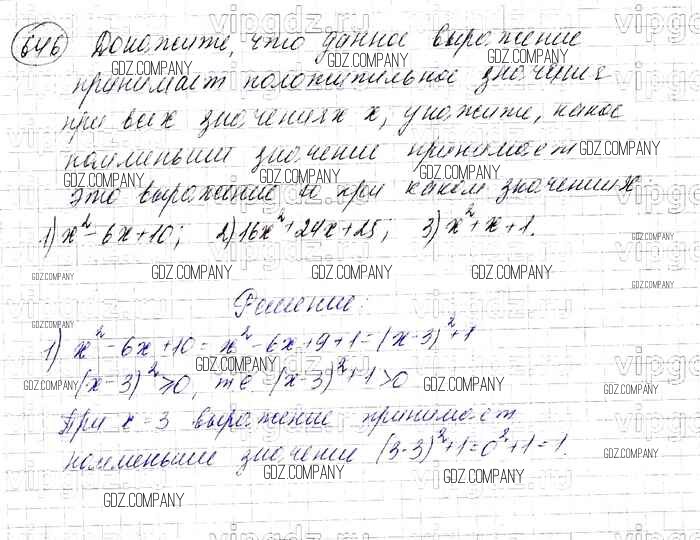 646 Докажите, что данное выражение
принимает положительное значение
при всех значениях x, укажите, какое
наименьшее значение принимает
это выражение и при каком значении x:
1) x² - 6x + 10; 2) 16x² + 24x + 25; 3) x² + x + 1.
Решение:
1) x² - 6x + 10 = x² - 6x + 9 + 1 = (x - 3)² + 1
(x - 3)² ≥ 0, т.е (x - 3)² + 1 > 0
При x = 3 выражение принимает
наименьшее значение (3 - 3)² + 1 = 0² + 1 = 1.
GDZ.COMPANY
vipgdz.ru